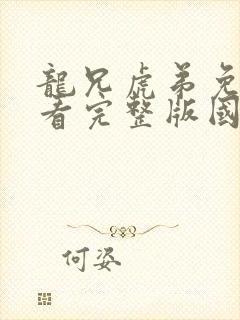 龍兄虎弟免
看完整版國
何姿